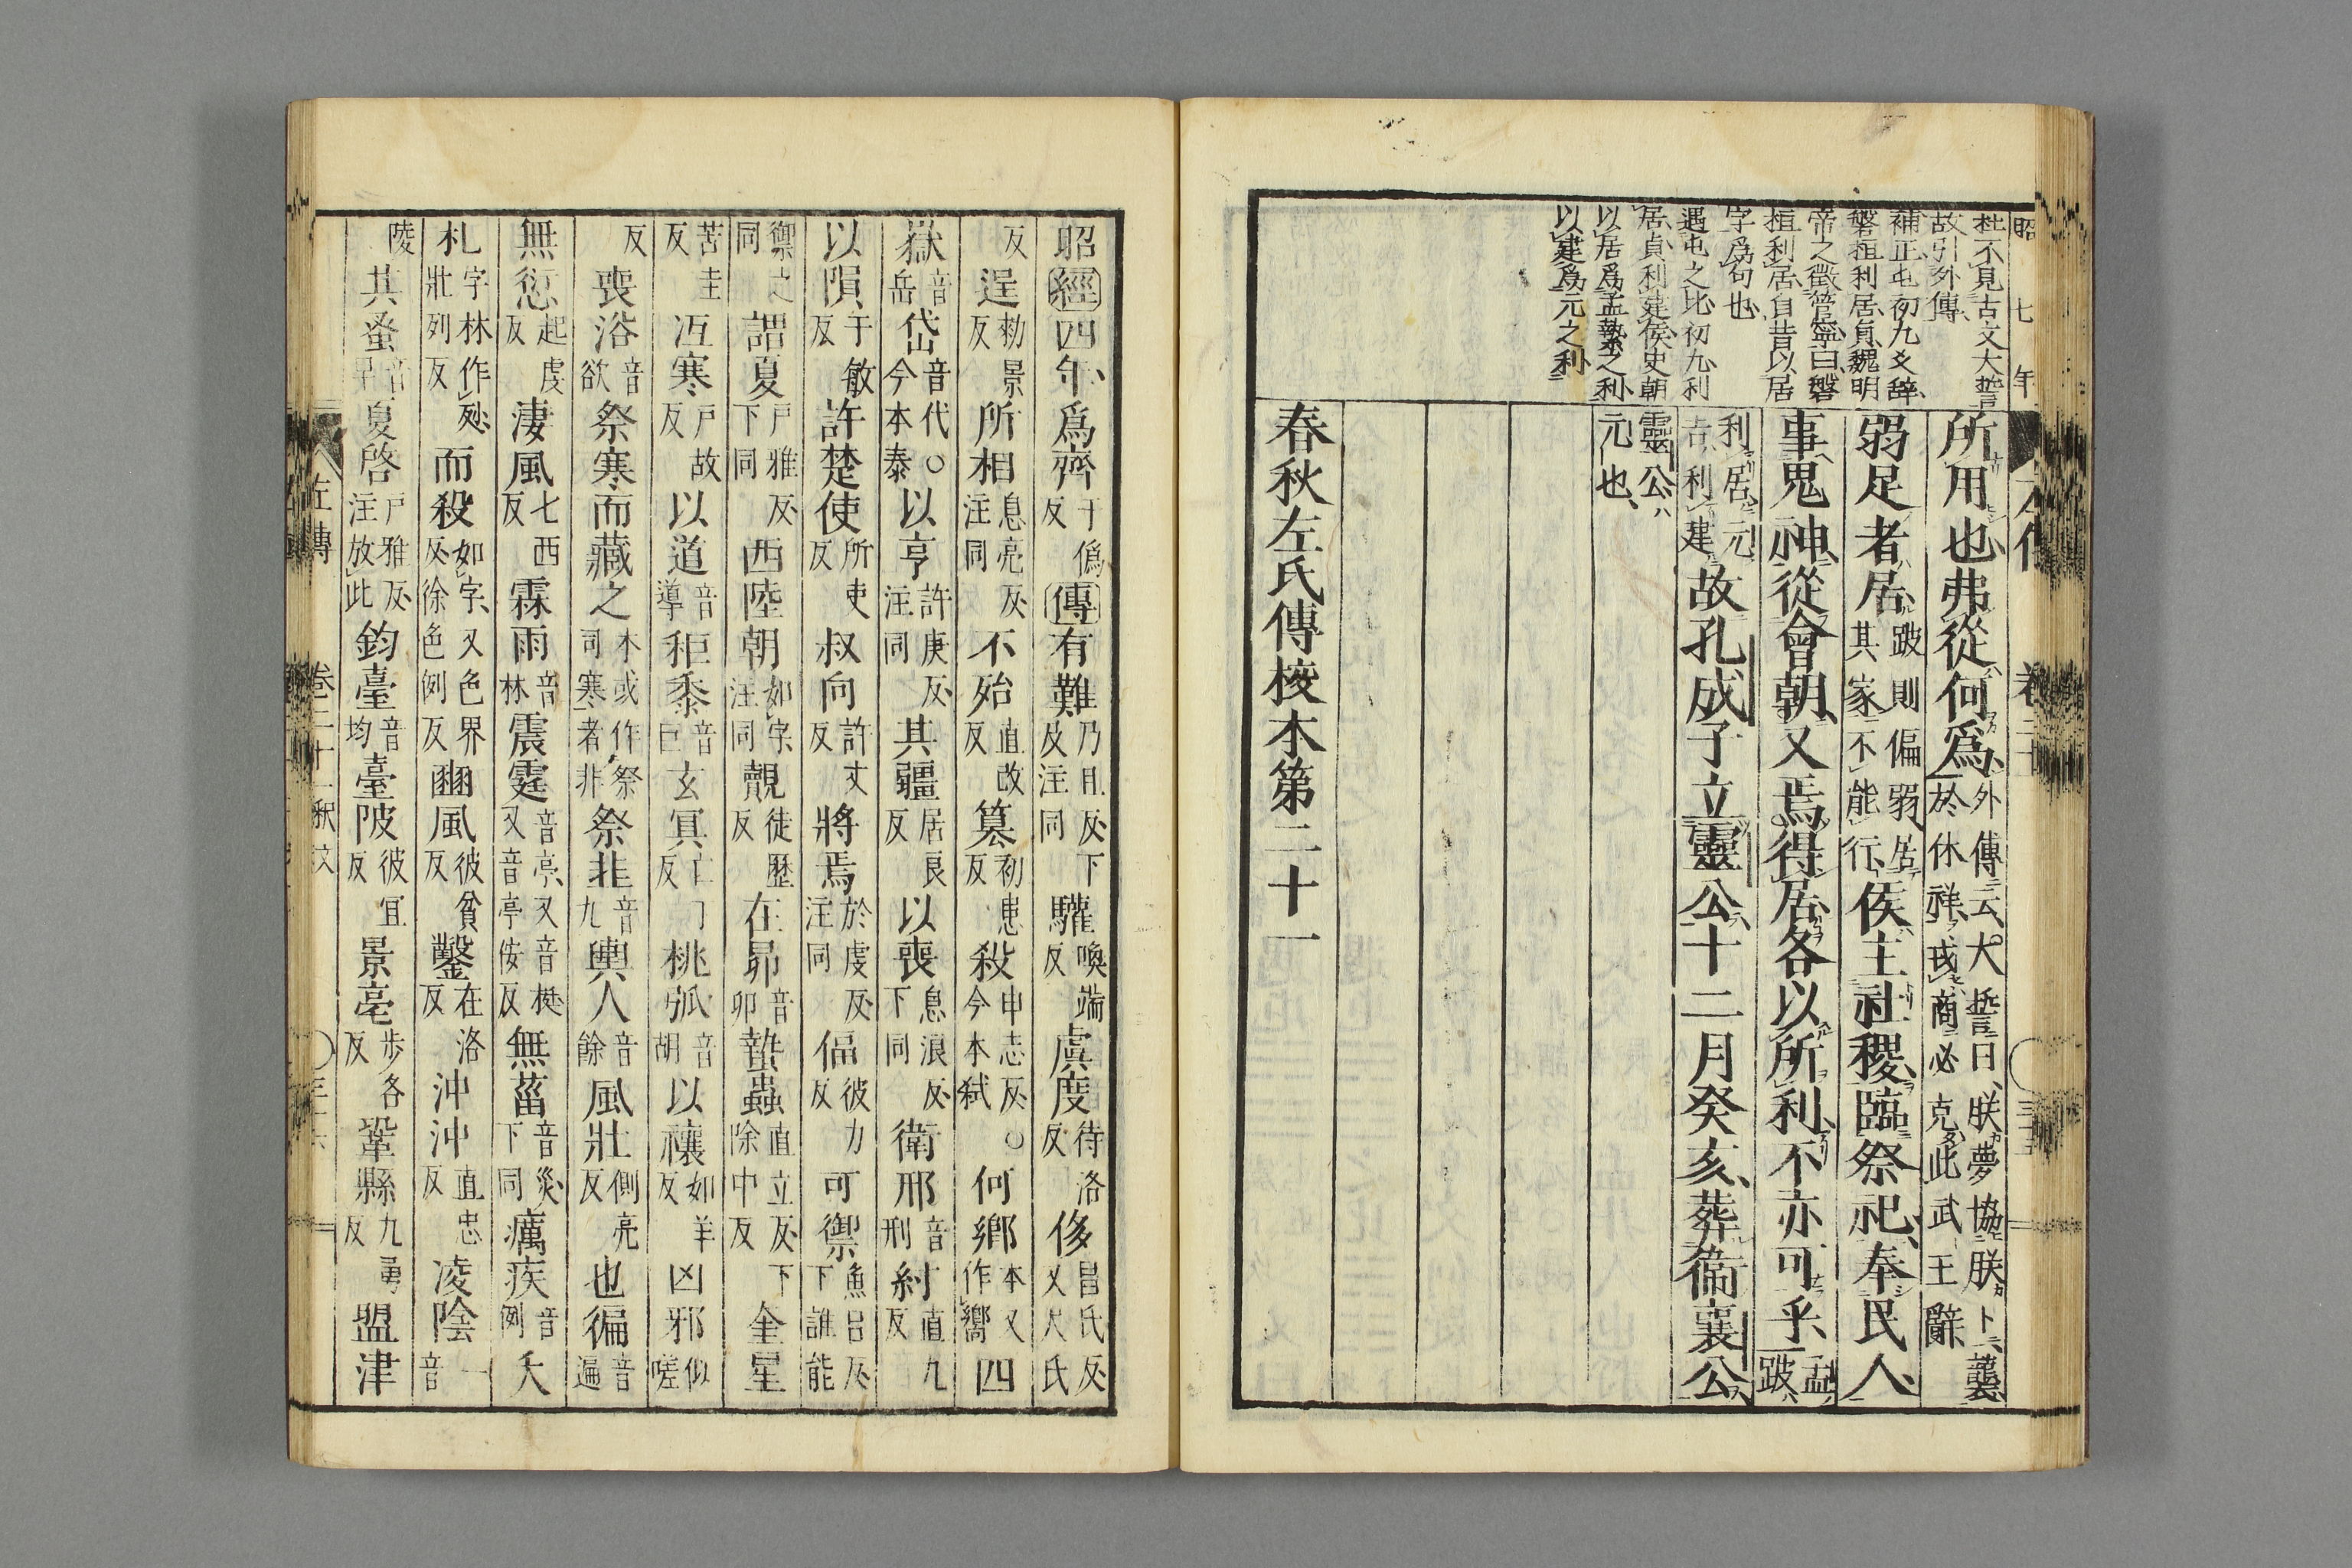 昭 七年
杜不見古文大誓
故引外傳
補正屯初九爻辭
磐桓利居貞魏明
帝之徵管寧曰磐
桓利居自昔以居
字爲句也
遇屯之比初九利
居貞利建侯史朝
以居爲孟縶之利
以建爲元之利
所用也弗從何爲外傳云大誓曰朕夢協朕卜襲於休祥戎商必克此武王辭
弱足者居跛則偏弱居其家不能行侯主社稷臨祭祀奉民人
事鬼神從會朝又焉得居各以所利不亦可乎孟跛
利居元吉利建故孔成子立靈公十二月癸亥葬衞襄公
靈公元也
春秋左氏傳校本第二十一
昭經四年爲齊于僞反傳有難乃旦反下及注同驩喚端反虞度待洛反侈昌氏反又尺氏
反逞勑景反所相息亮反注同不殆直改反篡初患反殺申志反○今本弒何鄉本又作嚮四
嶽音岳岱音代○今本泰以亨許庚反注同其疆居良反以喪息浪反下同衛邢音刑紂直九反
以隕于敏反許楚使所吏反叔向許丈反將焉於虔反注同偪彼力反可禦魚呂反下誰能
禦之同謂夏戶雅反下同西陸朝如字注同覿徒歷反在昴音卯蟄蟲直立反下除中反奎星
苦圭反冱寒戶故反以道音導秬黍音巨玄冥亡丁反桃弧音胡以禳如羊反凶邪似嗟
反喪浴音欲祭寒而藏之本或作祭司寒者非祭韭音九輿人音餘風壯側亮反也徧音遍
無愆起虔反淒風七西反霖雨音林震霆音亭又音挺又音亭佞反無菑音災下同癘疾音例夭
札字林作㱦壯列反而殺如字又色界反徐色例反豳風彼貧反鑿在洛反沖沖直忠反凌陰一音
陵其蚤音早夏啓戶雅反注放此鈞臺音均臺陂彼宜反景亳步各反鞏縣九勇反盟津
左傳 卷二十一釈文 ○三十六